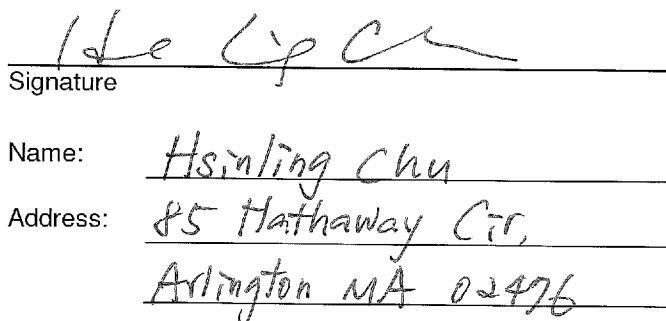 Signature
Name: Hsinling Chu
Address: 85 Hathaway Cir,
Arlington MA 02476